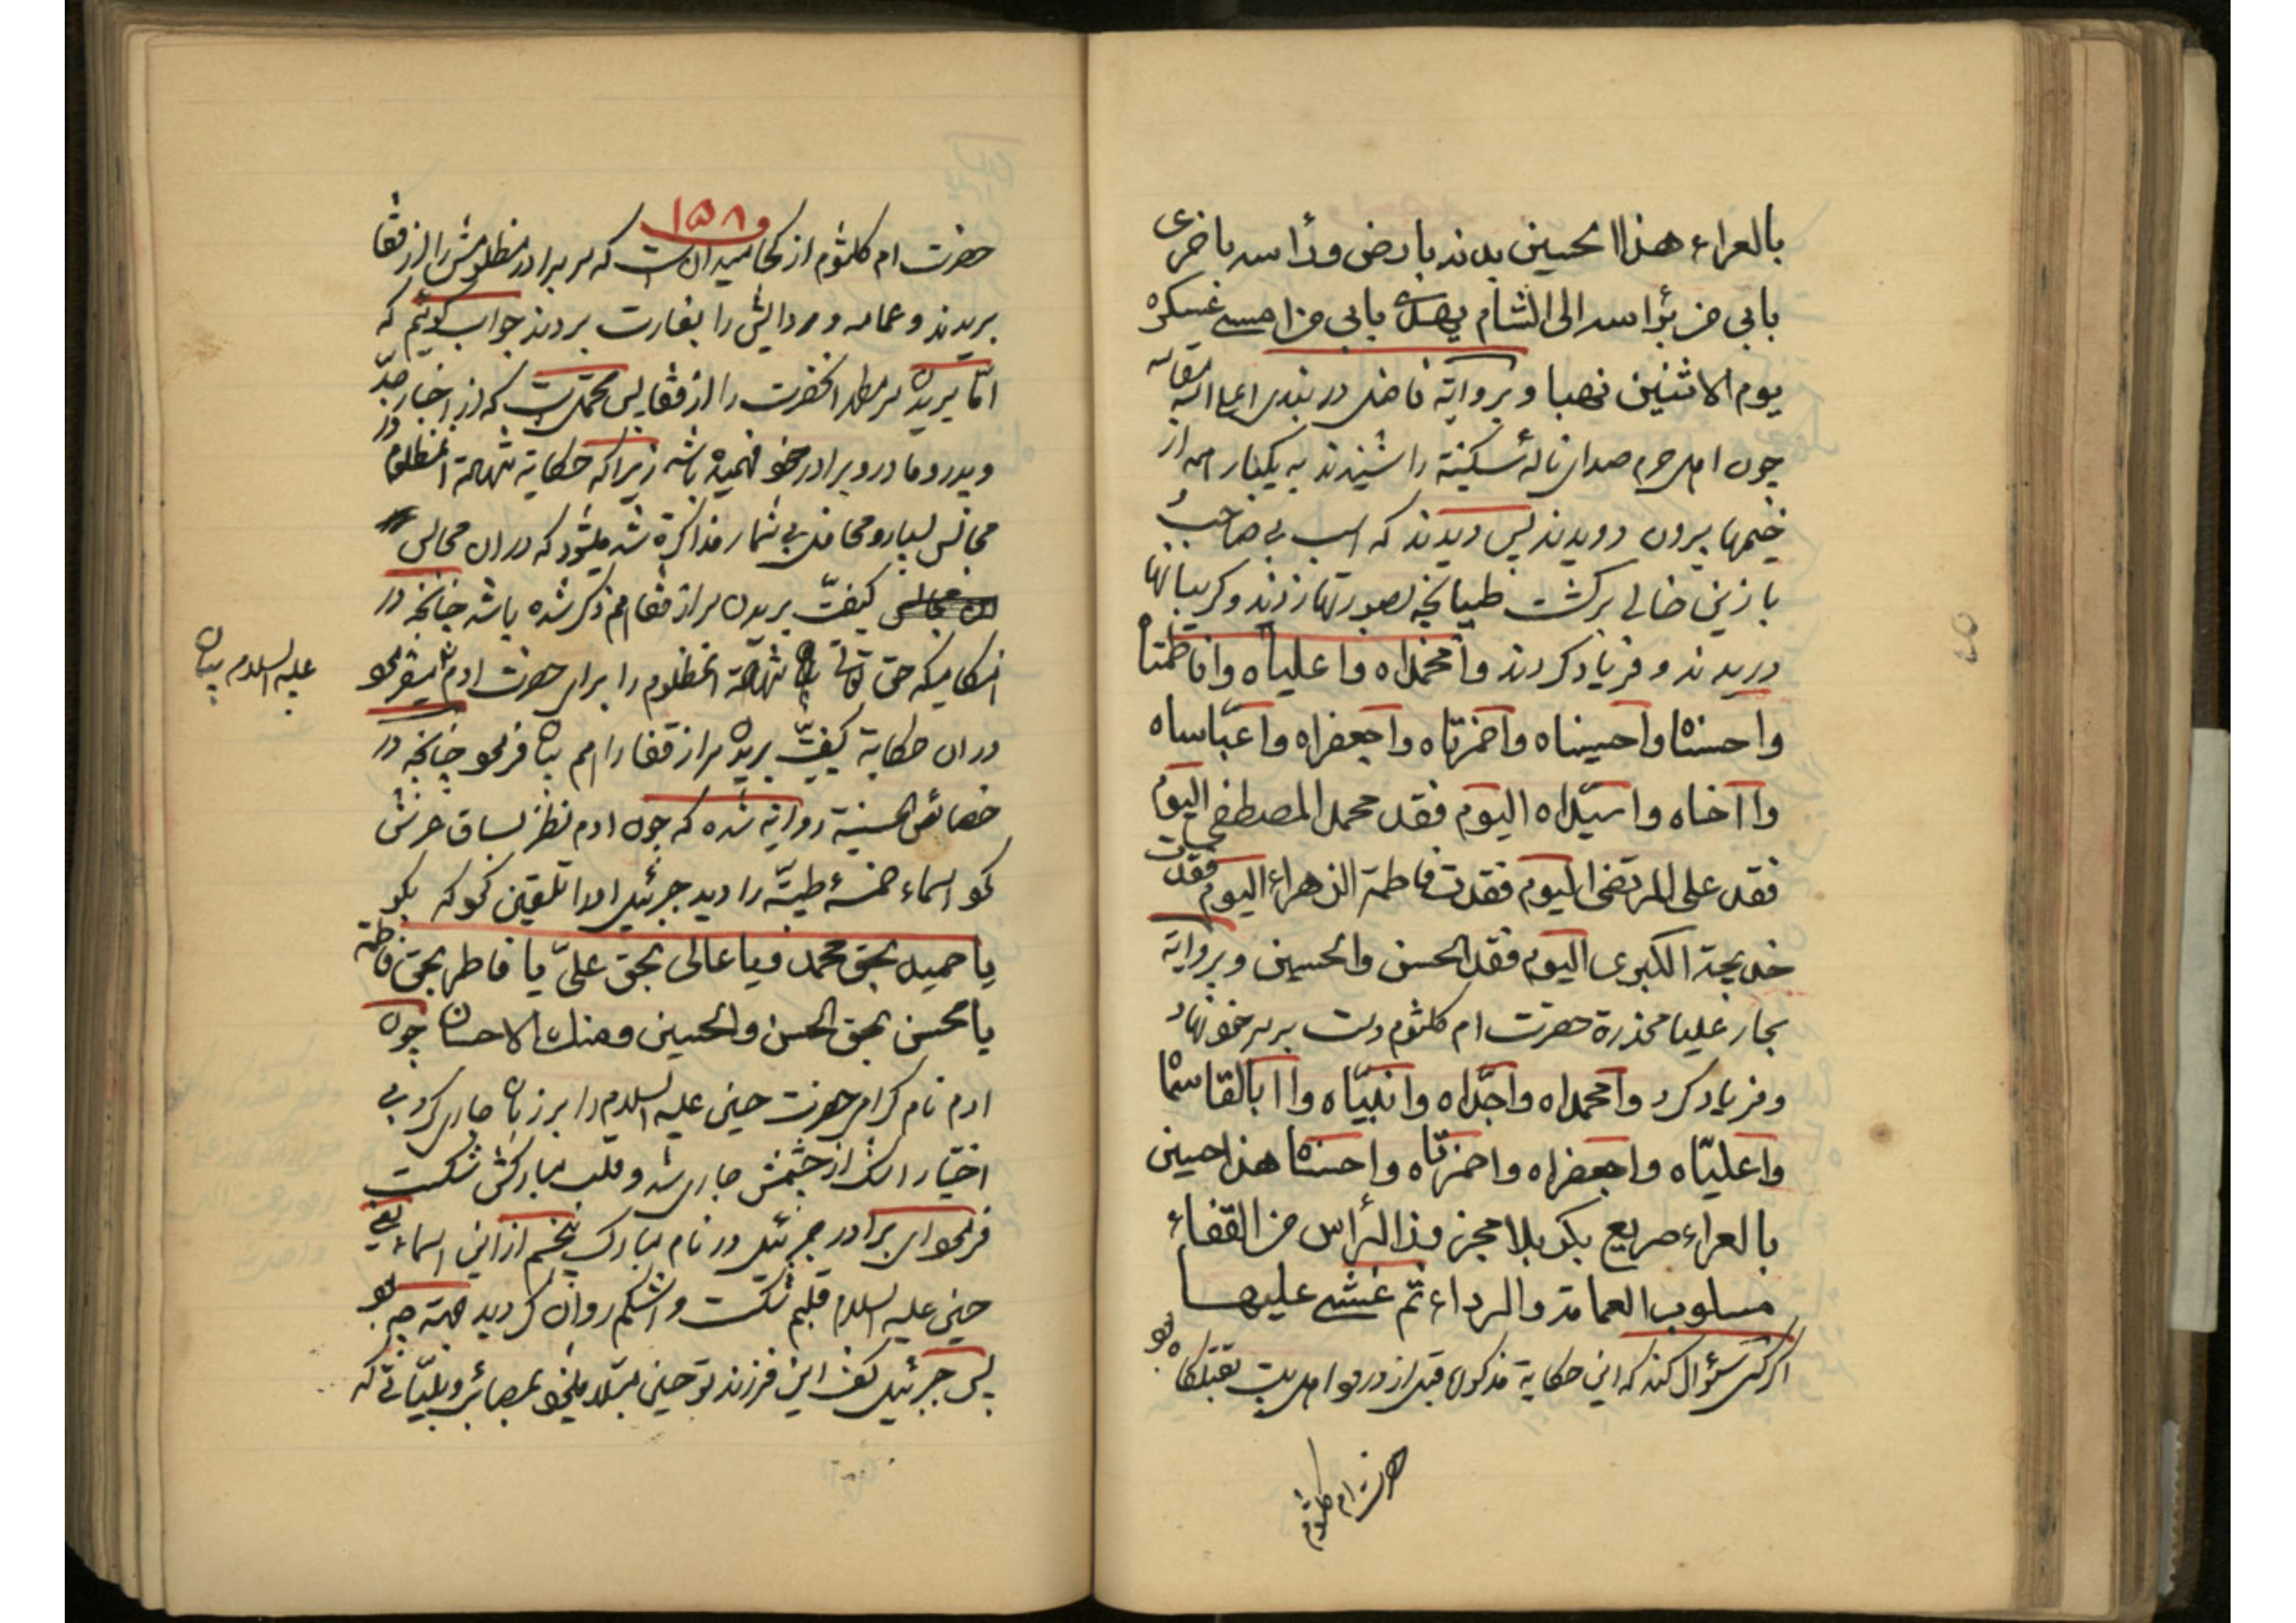 بالعراء هذا الحسین بدنه بارض ورأسه باخری
بابی من برأسه الی الشام یهدی بابی من امسی عسکره
یوم الاثنین نهبا وبروایة فاضل دربندی اعلی الله مقامه
چون اهل حرم صدای نالهٔ سکینة را شنیدند به یکبار همه از
خیمها بیرون دویدند پس دیدند که اسب بی صاحب
با زین خالی برگشت طپانچه بصورتها زدند و گریبانها
دریدند و فریاد کردند وامحمداه واعلیاه وافاطمتاه
واحسناه واحسیناه واحمزتاه واجعفراه واعبّاساه
وا اخاه واسیّداه الیوم فقد محمد المصطفی الیوم
فقد علی المرتضی الیوم فقدت فاطمة الزهراء الیوم فقدت
خدیجة الکبری الیوم فقد الحسن والحسین وبروایة
بحار علیا مخذرة حضرت ام کلثوم دست بر سر خود نهاد
وفریاد کرد وامحمداه واجدّاه وانبیّاه وا ابالقاسماه
واعلیّاه واجعفراه واحمزتاه واحسناه هذا حسین
بالعراء صریع بکربلا مجزوذ الرأس من القفاء
مسلوب العمامة والرداء ثم غشی علیها
اگر کسی سؤال کند که این حکایة مذکوره قبل از ورود اهل بیت بقتلگاه بود
حضرت ام کلثوم
۱۵۸
حضرت ام کلثوم از کجا میدانست که سر برادر مظلومش را از قفا
بریدند و عمامه و ردایش را بغارت بردند جواب گوئیم که
امّا بریدن سر مطهر انحضرت را از قفا پس محتمل است که از اخبار جدّ
و پدر و مادر و برادر خود فهمیده باشد زیرا که حکایة شهادة انمظلوم در
مجالس بسیار و محافل بی شمار مذاکرة شده میشود که در ان مجالس
کیفیّت بریدن سر از قفا هم ذکر شده باشد چنانچه در
هنگامیکه حق تعالی شهادة انمظلوم را برای حضرت ادم علیه السلام بیان میفرمود
در ان حکایة کیفیّت بریدن سر از قفا را هم بیان فرمود چنانچه در
خصائص الحسینیة روایة شده که چون ادم نظر بساق عرش
نمود اسماء خمسهٔ طیبّه را دید جبرئیل او را تلقین نمود که بگو
یا حمید بحق محمد ویا عالی بحق علیّ یا فاطر بحق فاطمة
یا محسن بحق الحسن والحسین ومنك الاحسان چون
ادم نام گرامی حضرت حسین علیه السلام را بر زبان جاری کرد بی
اختیار اشک از چشمش جاری شد و قلب مبارکش شکست
فرمود ای برادر جبرئیل در نام مبارک پنجم از این اسماء یعنی
حسین علیه السلام قلبم شکست و اشکم روان گردید جهة چه بود
پس جبرئیل گفت این فرزند تو حسین مبتلا میشود بمصائب و بلیّاتی که